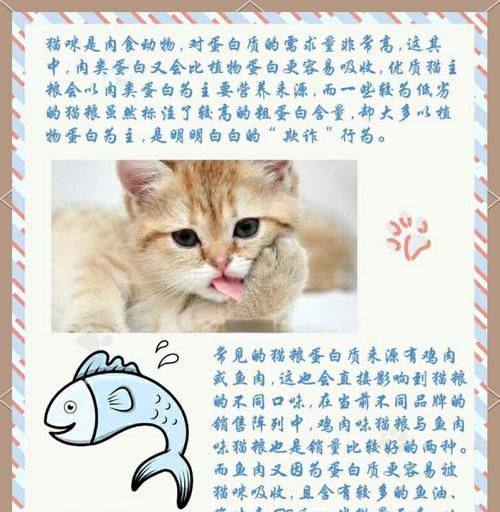 猫咪是肉食动物，对蛋白质的需求量非常高，这其
中，肉类蛋白又会比植物蛋白更容易吸收，优质猫主
粮会以肉类蛋白为主要营养来源，而一些较为低劣
的猫粮虽然标注了较高的粗蛋白含量，却大多以植
物蛋白为主，是明明白白的“欺诈”行为。
常见的猫粮蛋白质来源有鸡肉
或鱼肉，这也会直接影响到猫粮
的不同口味，在当前不同品牌的
销售阵列中，鸡肉味猫粮与鱼肉
味猫粮也是销量比较好的两种。
而鱼肉又因为蛋白质更容易被
猫咪吸收，且含有较多的鱼油、